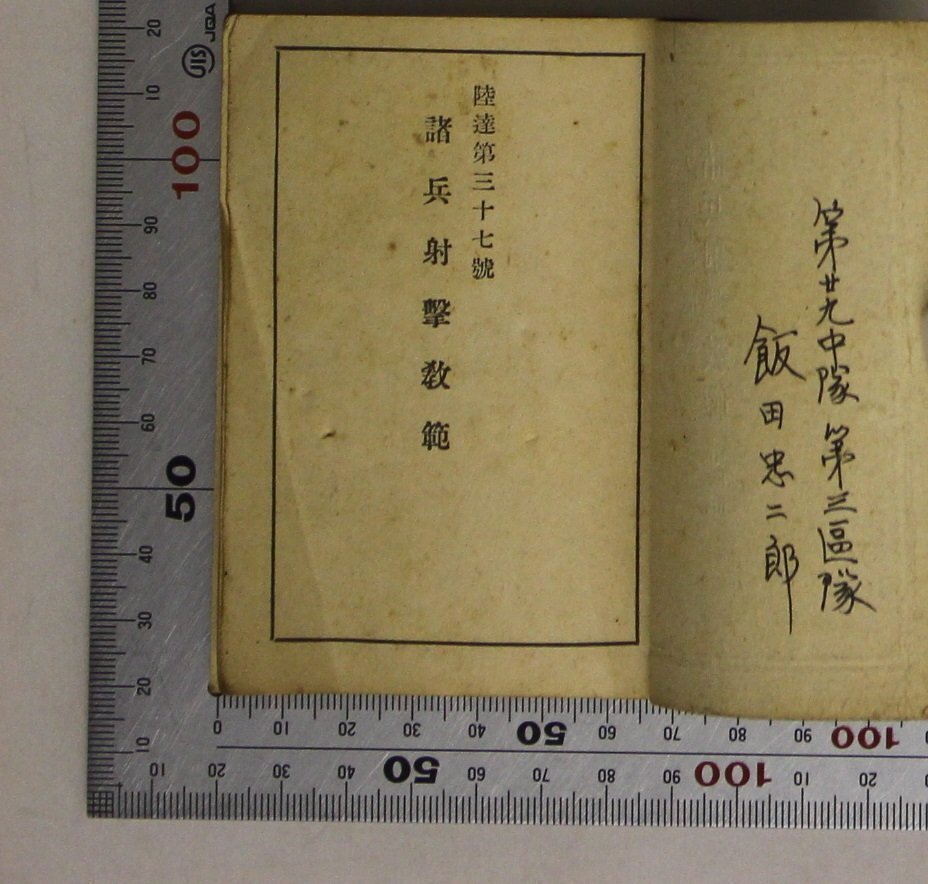 第廿九中隊第三區隊
飯田忠二郎
陸達第三十七號
諸兵射擊教範
JIS JQA
20
10
100
90
80
70
60
50
40
30
20
10
0 10 20 30 40 50 60 70 80 90 100
10 20 30 40 50 60 70 80 90 100 10 20